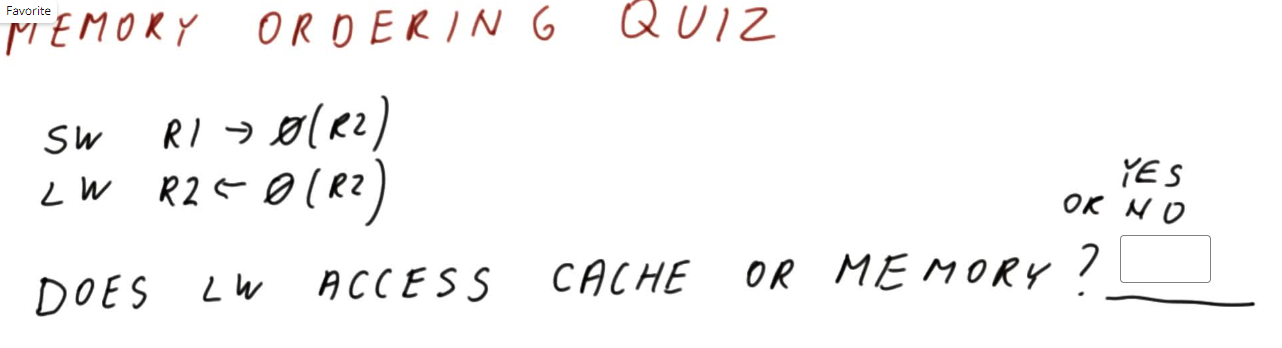 Favorite
MEMORY ORDERING QUIZ
SW R1 → Ø(R2)
LW R2 ← Ø(R2)
YES
OR NO
DOES LW ACCESS CACHE OR MEMORY?